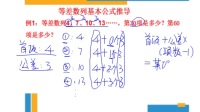 等差数列基本公式推导
例1:等差数列4、7、10、13……,第30项是多少?第60
项是多少?
首项:4
公差:3
① 4
② 7
③ 10
④ 13
4+0×3
4+1×3
4+2×3
4+3×3
首项+公差×
(项数-1)